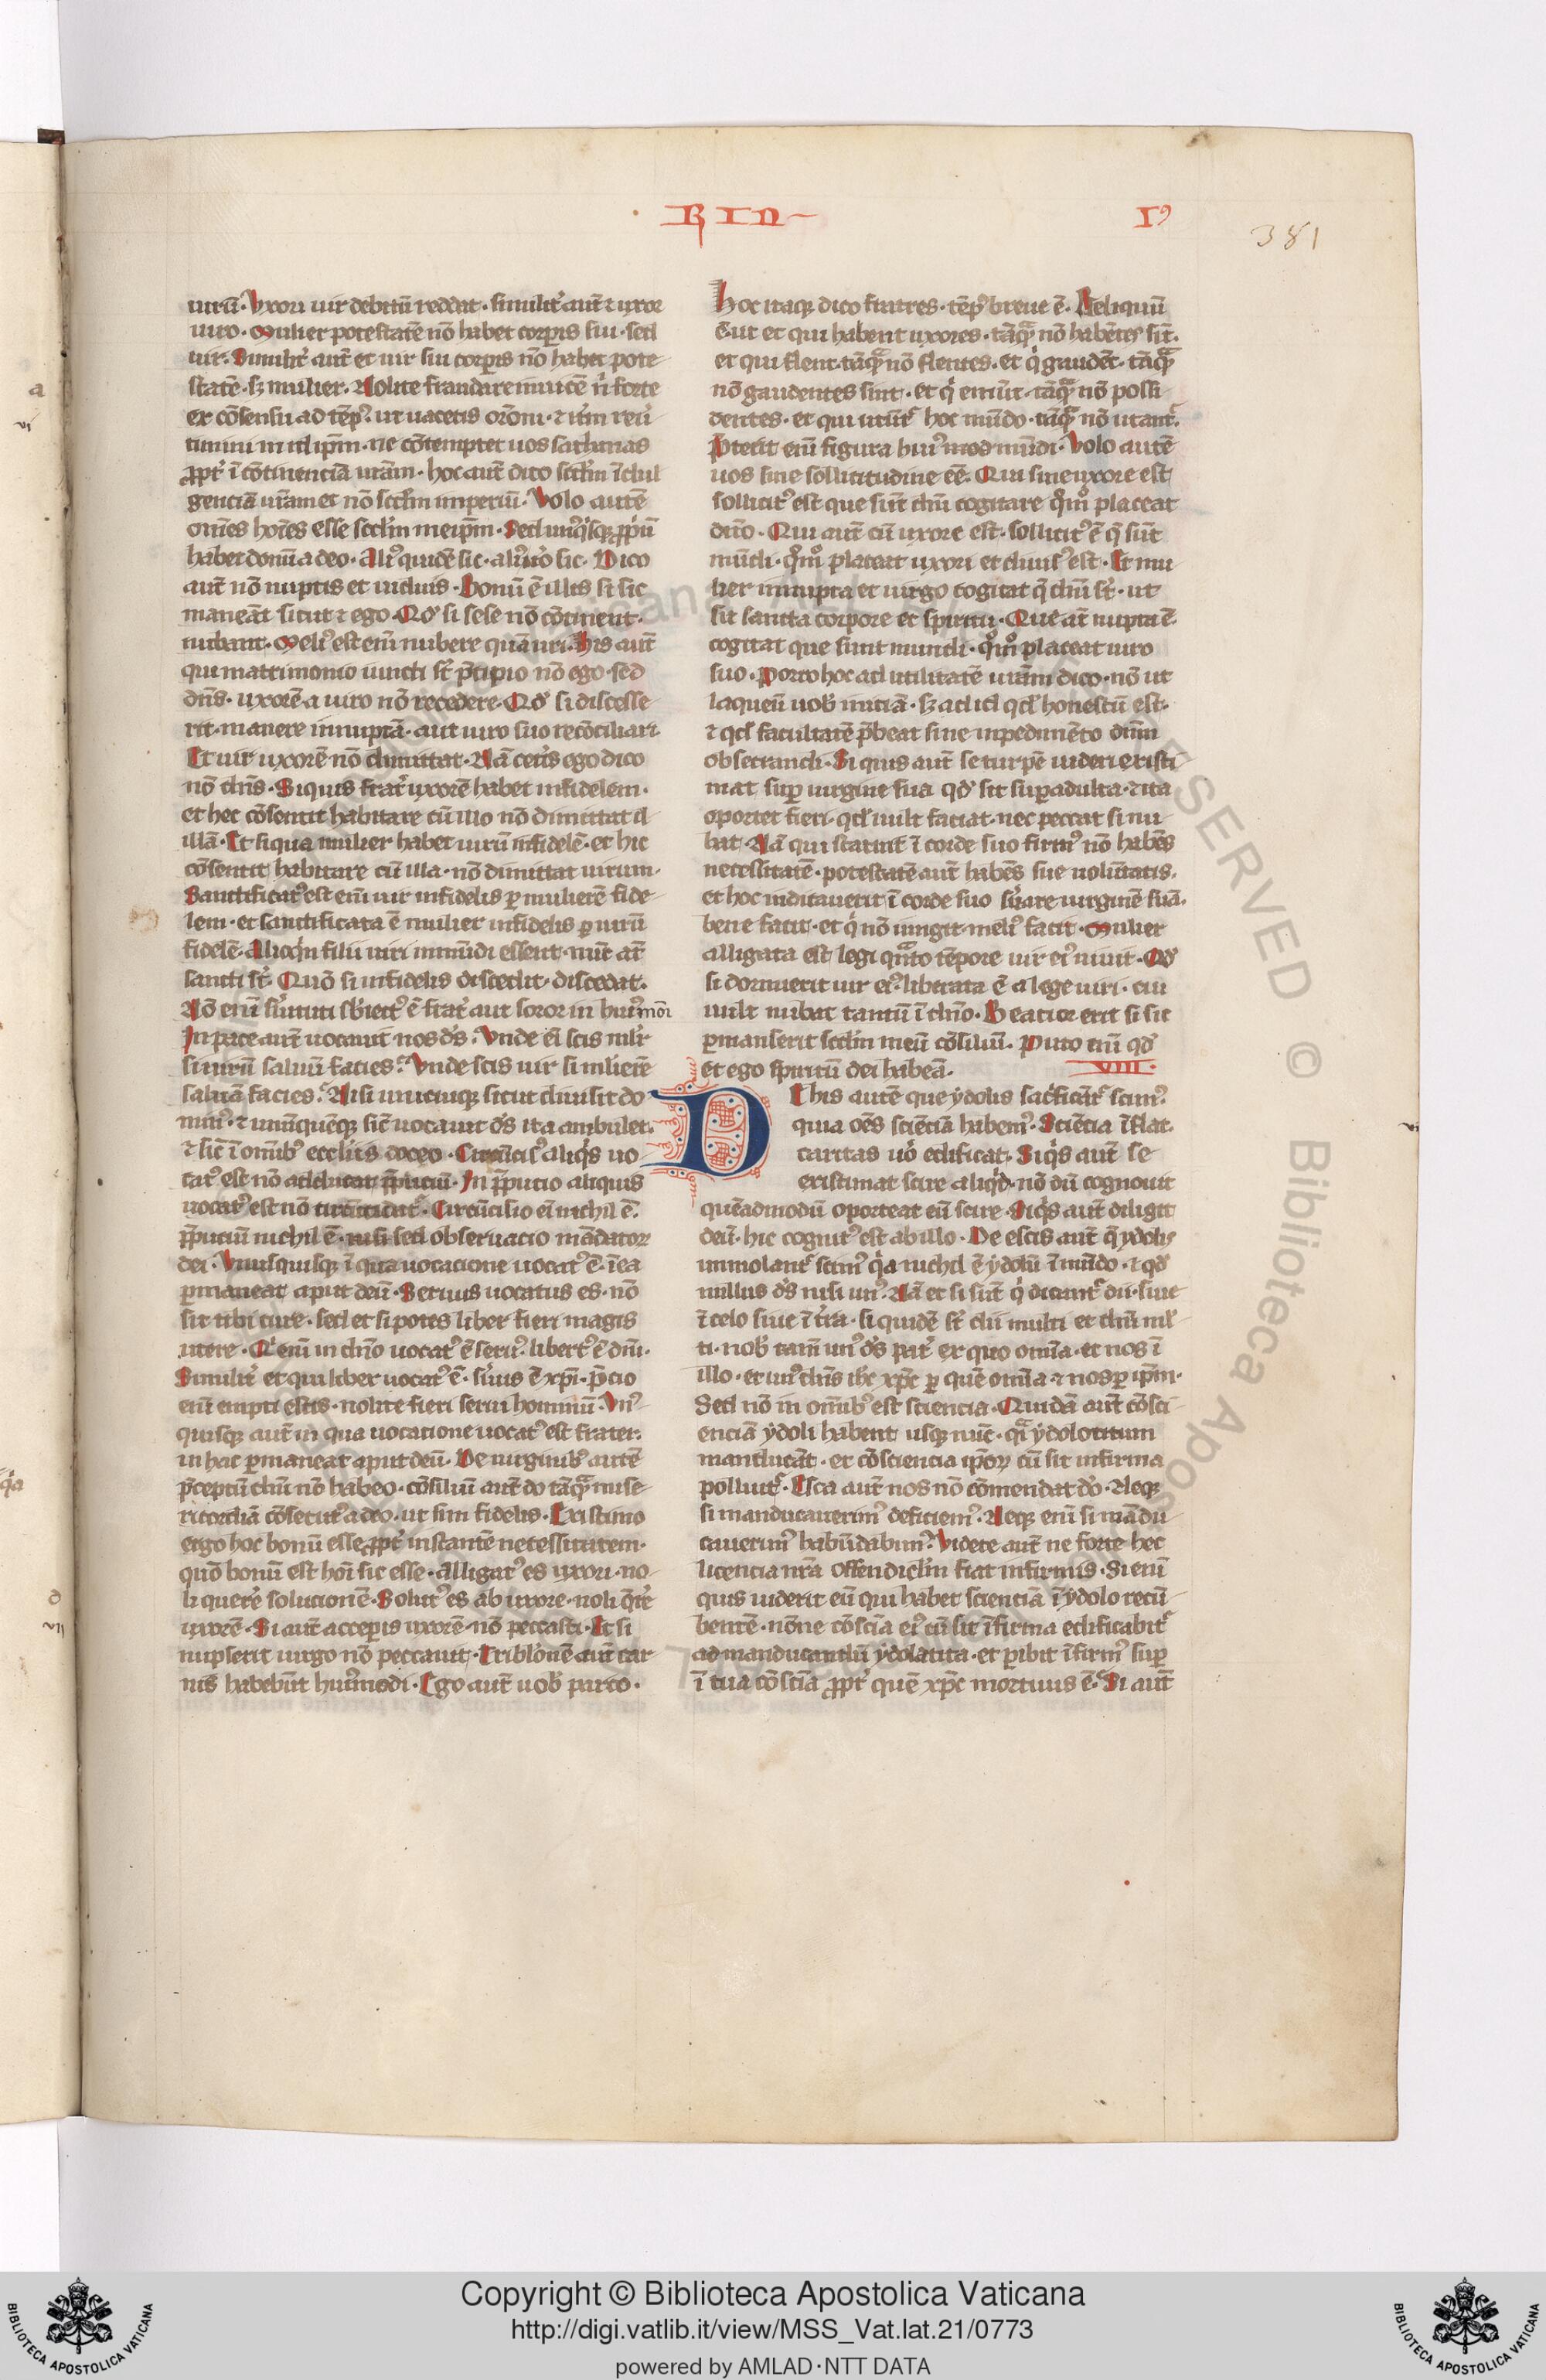 RIN
I9
381
uirū. Vxori uir debitū reddat. similit̾ aut̄ ⁊ uxor
uiro. Mulier potestatē nō habet corꝑis sui. sed
uir. Similit̾ aut̄ et uir sui corꝑis nō habet pote-
statē. sꝫ mulier. Nolite fraudare inuicē n̄ forte
ex cōsensu ad tēpꝰ. ut uacetis orōni. ⁊ it̄m reu̾
timini in id ip̄m. ne cōtemptet uos sathanas
ꝓpt̾ ī cōtinenciā ur̄am. hoc aut̄ dico scd̄m īdul
genciā ur̄am et nō scd̄m imperiū. Volo autē
om̄es hoīes esse scd̄m meip̄m. Sed unꝰqͥsqꝫ ꝓpͥū
habet donū a deo. Aliꝰ quidē sic. aliꝰ uō sic. Dico
aut̄ nō nuptis et uiduis. Bonū ē illis si sic
maneāt sicut ⁊ ego. Qď si sese nō cōtinent.
nubant. Meliꝰ est em̄ nubere quā uri. His aut̄
qui matrimonio iuncti sr̄ p̄cipio nō ego. sed
dn̄s. uxorē a uiro nō recedere. Qď si discesse
rit. manere innuptā. aut uiro suo recōciliari.
Et uir uxorē nō dimittat. Nā cet̾is ego dico
nō dn̄s. Siquis frat̾ uxorē habet infidelem.
et hec cōsentit habitare cū illo nō dimittat il
illā. Et siqua mulier habet uirū infidelē. et hic
cōsentit habitare cū illa. nō dimittat uirum.
Sanctificatꝰ est em̄ uir infidelis ꝑ mulierē fide
lem. et sanctificata ē mulier infidelis ꝑ uirū
fidelē. Alioqͥn filii uri inmūdi essent. nūc at̄
sancti sr̄. Quō si infidelis discedit. discedat.
Nō em̄ s̾uituti sb̾iectꝰ ē frat̾ aut soror in huiꝰmōi
In pace aut̄ uocauit nos dš. Vnde em̄ scis mlr̾
si uirū saluū facies. Vnde scis uir si mlierē
saluā facies. Nisi unicuiqꝫ sicut diuisit do
minꝰ. ⁊ unūquēqꝫ sic̄ uocauit dš ita ambulet.
⁊ sic̄ ī om̄ibꝰ eccl̄iis doceo. Circūcisꝰ aliqͥs uo
catꝰ est nō adducat p̄puciū. In p̄pucio aliquis
uocatꝰ est nō circūcidat᷑. Circūcisio em̄ nichil ē.
p̄puciū nichil ē. nisi sed obseruacio mādatoꝝ
dei. Vnusquisqꝫ ī qua uocacione uocatꝰ ē. ī ea
ꝑmaneat aput deū. Seruus uocatus es. nō
sit tibi cure. sed et si potes liber fieri magis
utere. Qͥ em̄ in dn̄o uocatꝰ ē seruꝰ. libertꝰ ē dn̄i.
Similit̾ et qui liber uocatꝰ ē. s̾uus ē xp̄i. p̄cio
em̄ empti estis. nolite fieri serui hominū. Vnꝰ
quisqꝫ aut̄ in qua uocacione uocatꝰ est frater.
in hac ꝑmaneat aput deū. De uirginibꝰ autē
p̄ceptū dn̄i nō habeo. cōsiliū aut̄ do tāqͣꝫ mise-
ricordiā cōsecutꝰ a deo. ut sim fidelis. Existimo
ergo hoc bonū esse ꝓpt̾ instantē necessitatem.
quō bonū est hoī sic esse. Alligatꝰ es uxori. no-
li quere̾ solucionē. Solutꝰ es ab uxore. noli q̄re̾
uxorē. Si aut̄ acceꝑis uxorē. nō peccasti. Et si
nupserit uirgo nō peccauit. Tribl̾onē aut̄ car
nis habebūt huiꝰmodi. Ego aut̄ uob̾ parco.
Hoc itaqꝫ dico fratres. tēpꝰ breue ē. Reliquū
ē. ut et qui habent uxores. tāqͣꝫ nō habētes sīt.
et qui flent. tāqͣꝫ nō flentes. et qͥ gaudēt. tāqͣꝫ
nō gaudentes sint. et qͥ emūt. tāqͣꝫ nō possi
dentes. et qui utūt᷑ hoc mūdo. tāqͣꝫ nō utant᷑.
P̄terit em̄ figura huiꝰmodi mūdi. Volo autē
uos sine sollicitudine eē. Qui sine uxore est
sollicitꝰ est que sūt dn̄i cogitare qͦmͦ placeat
dn̄o. Qui aut̄ cū uxore est. sollicitꝰ ē q̄ sūt
mūdi. qͦmͦ placeat uxori et diuisꝰ est. Et mu
lier innupta et uirgo cogitat q̄ dn̄i sr̄. ut
sit sancta corpore et spiritu. Que at̄ nupta ē.
cogitat que sunt mundi. qͦmͦ placeat uiro
suo. Porro hoc ad utilitatē ur̄am dico. nō ut
laqueū uob̾ iniciā. sꝫ ad id qd̾ honestū est.
⁊ qd̾ facultatē p̄beat sine inpedimēto dn̄m
obsecrandi. Si quis aut̄ se turpē uideri existi
mat suꝑ uirgine sua qď sit suꝑadulta. ⁊ ita
oportet fieri. qd̾ uult faciat. nec peccat si nu-
bat. Nā qui statuit ī corde suo firmꝰ nō habēs
necessitatē. potestatē aut̄ habēs sue uolūtatis.
et hoc iudicauerit ī corde suo s̾uare uirginē suā.
bene facit. et qͥ nō iungit. meliꝰ facit. Mulier
alligata est legi qͣnto tēpore uir eiꝰ uiuit. Qď
si dormierit uir eiꝰ. liberata ē a lege uiri. cui
uult nubat tantū ī dn̄o. Beatior erit si sic
ꝑmanserit scd̄m meū cōsiliū. Puto em̄ qď
et ego spiritū dei habeā.
VIII.
De his autē que ydolis sac̾ficāt᷑ scimꝰ.
quia om̄s sciēciā habemꝰ. Sciēcia īflat.
caritas uō edificat. Siqͥs aut̄ se
existimat scire aliqͥd. nō dū cognouit
quēadmodū oporteat eū scire. Siqͥs aut̄ diligit
deū. hic cognitꝰ est ab illo. De escis aut̄ q̄ ydolis
immolant᷑ scimꝰ qͥa nichil ē ydolū ī mūdo. ⁊ qď
nullus dš nisi unꝰ. Nā et si sūt qͥ dicant᷑ dii. siue
ī celo siue ī t̾ra. si quidē sr̄ dii multi et dn̄i ml̾
ti. nob̾ tam̄ unꝰ dš pat̾ ex quo om̄ia. et nos ī
illo. et unꝰ dn̄s ih̄c xp̄c ꝑ quē om̄ia ⁊ nos ꝑ ip̄m.
Sed nō in om̄ibꝰ est sciencia. Quidā aut̄ cōsci-
enciā ydoli habent usqꝫ nūc. qͣi ydoloticum
manducāt. et cōsciencia ip̄oꝝ cū sit infirma
polluit᷑. Esca aut̄ nos nō cōmendat do̾. Neqꝫ
si manducauerimꝰ deficiemꝰ. Neqꝫ em̄ si mādu
cauerimꝰ habūdabimꝰ. Videte aut̄ ne forte hec
licencia nr̄a offendicl̄m fiat infirmis. Si em̄
quis uiderit eū qui habet scienciā ī ydolo recū-
bentē. nōne cōscīa eiꝰ cū sit īfirma edificabit᷑
ad manducandū ydolatita. et ꝑibit īfirmꝰ suꝑ
ī tua cōscīa ꝓpt̾ quē xp̄c mortuus ē. Si aut̄
Copyright © Biblioteca Apostolica Vaticana
http://digi.vatlib.it/view/MSS_Vat.lat.21/0773
powered by AMLAD·NTT DATA